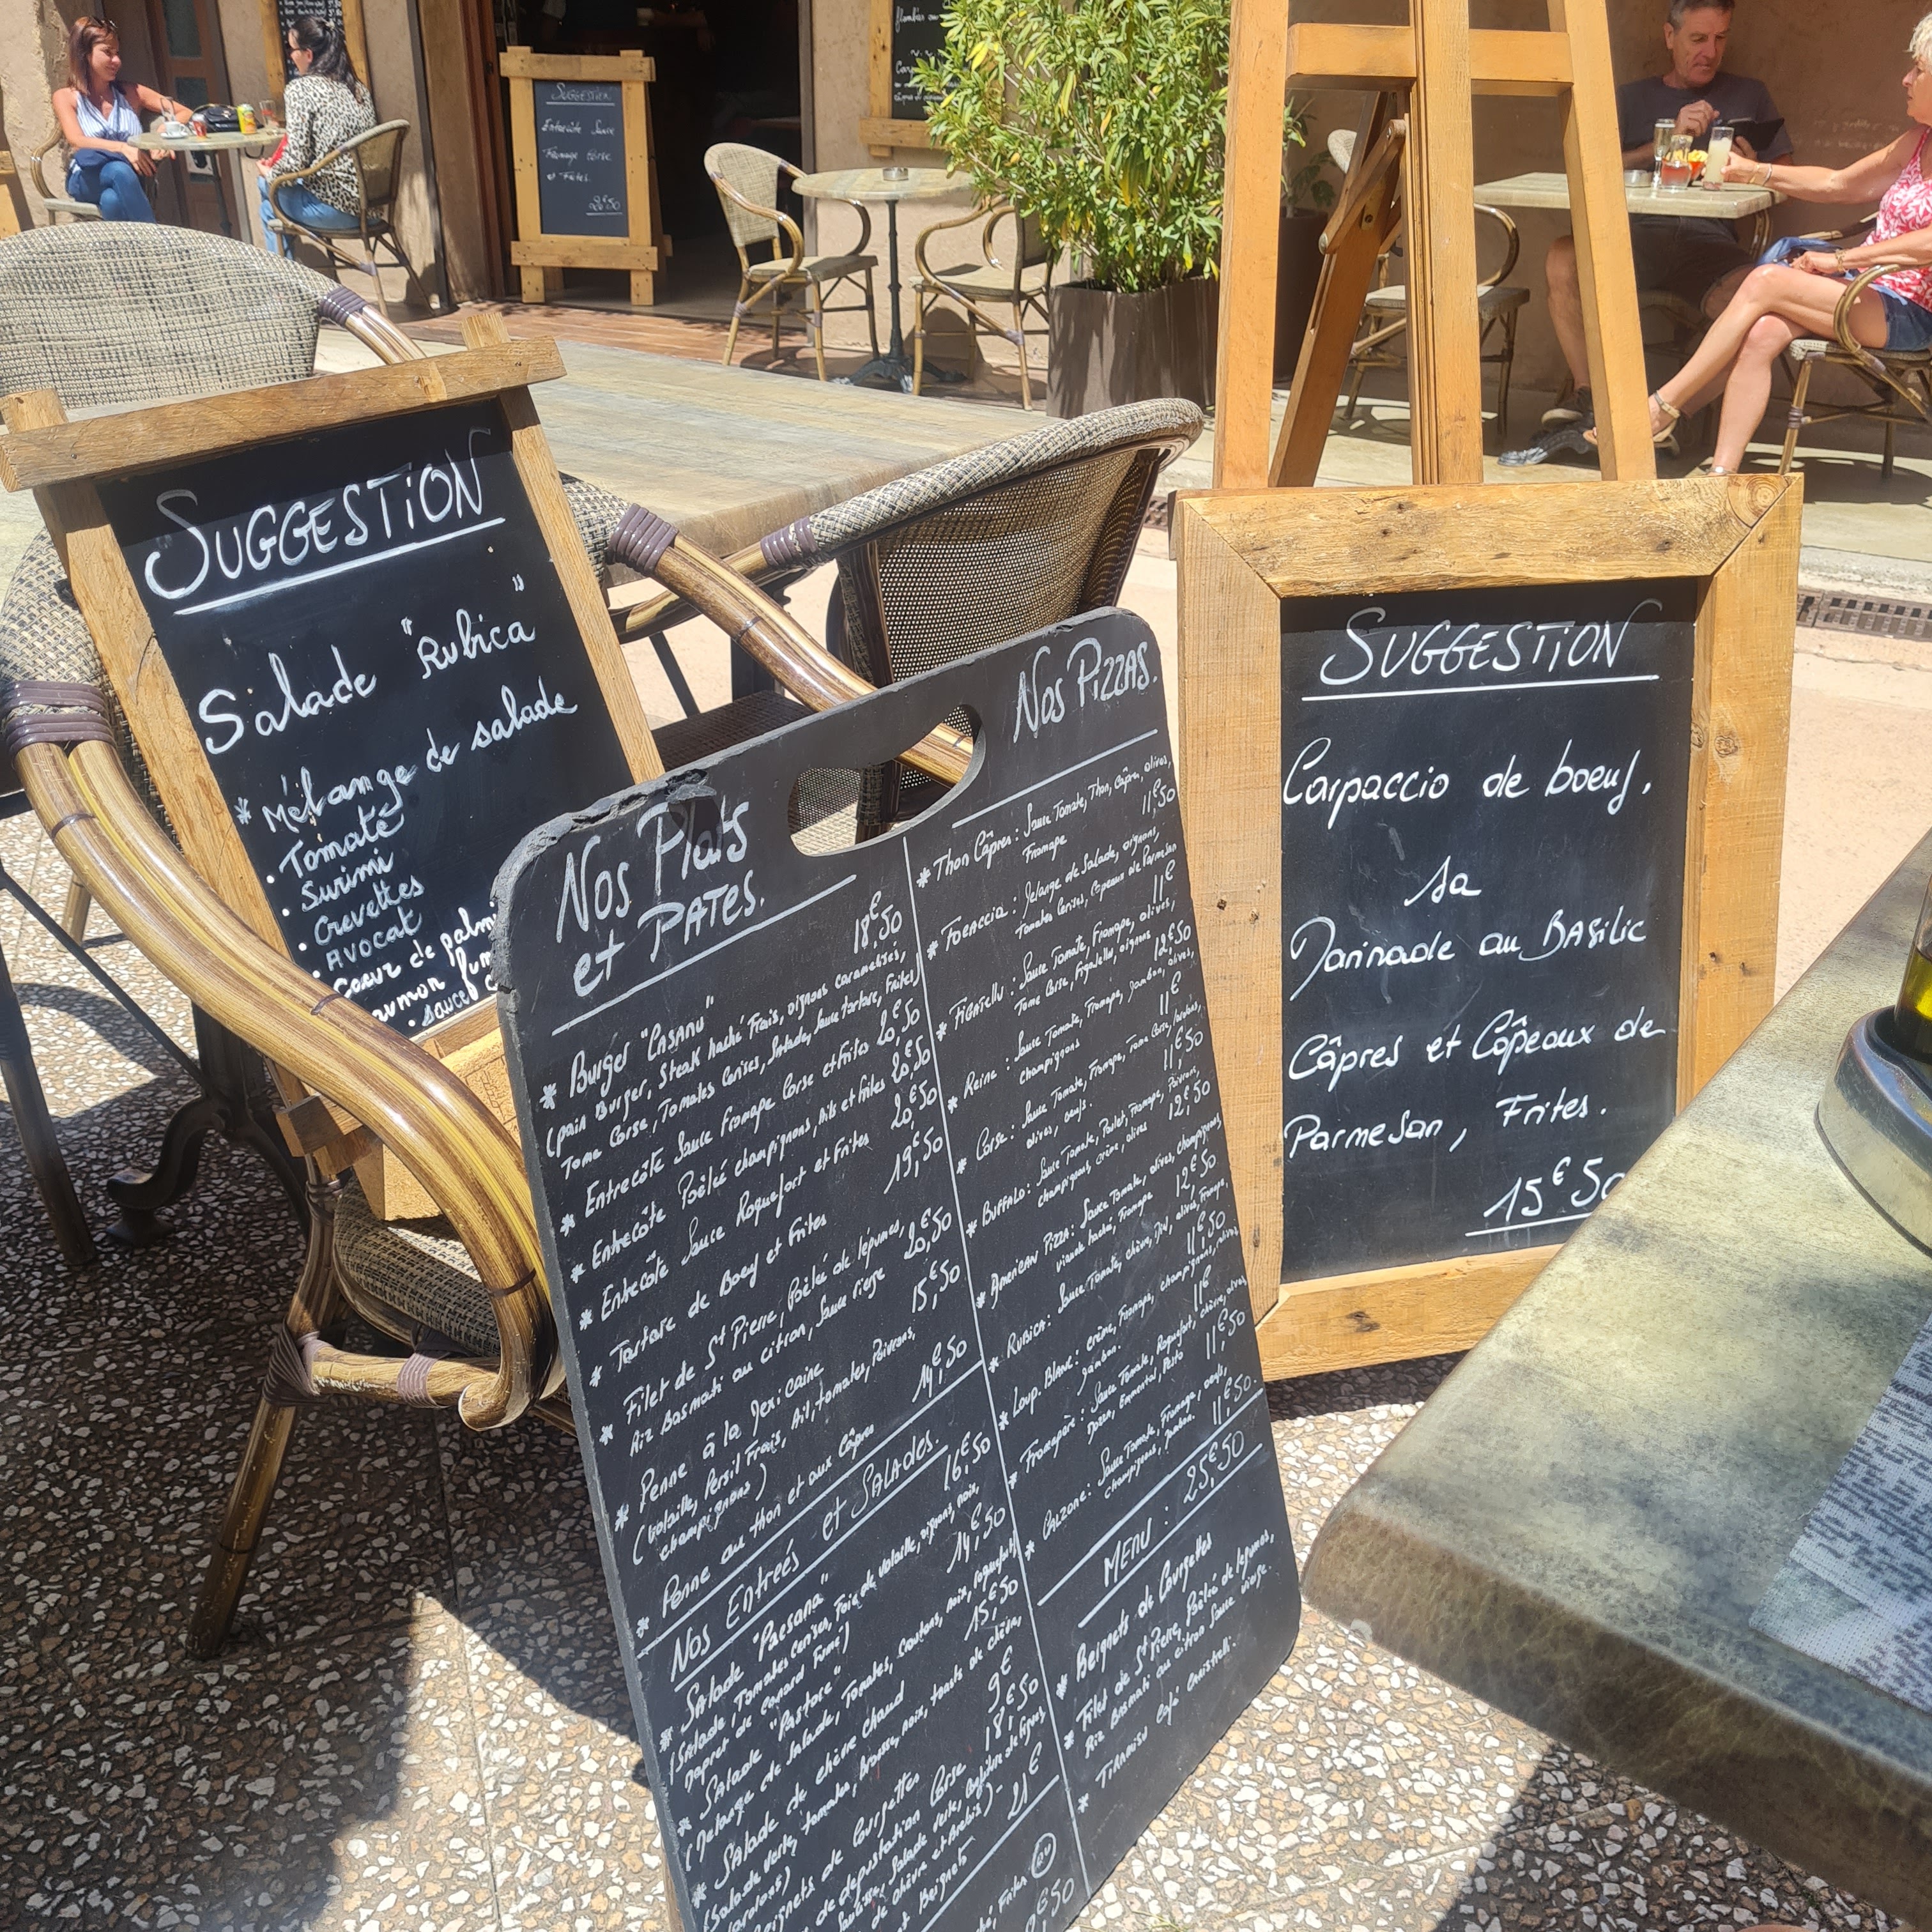 SUGGESTION
Entrecôte Sauce
Fromage Corse
et Frites.
SUGGESTION
Salade "Rubica"
* Mélange de salade
. Tomate
. Surimi
. Crevettes
. Avocat
. Coeur de palmi
. sauce
Nos Plats
et PATES.
18€,50
* Burger "CASANU"
(pain Burger, Steak haché Frais, oignons caramelisés,
Tome Corse, Tomates Cerises, Salade, Sauce tartare, Frites)
* Entrecôte Sauce Fromage Corse et Frites 20€,50
* Entrecôte Poêlée champignons, Ails et Frites 20€50
* Entrecôte Sauce Roquefort et Frites 20€50
* Tartare de Boeuf et Frites 19€,50
* Filet de St Pierre, Poêlée de légumes,
Riz Basmati au citron, Sauce vierge 20€,50
* Penne à la Mexicaine 15€,50
(Volaille, Persil Frais, Ail, tomates, Poivrons,
champignons)
* Penne au thon et aux câpres 14€,50
Nos Entrées et SALADES.
* SALADE "PAESANA" 16€,50
(Salade, Tomates Cerises, Foie de volaille, oignons, noix,
magret de canard Fumé)
* SALADE "PASTORE" 14€,50
(Melange de Salade, Tomates, Croutons, noix, roquefort)
* SALADE de chèvre chaud 15€50
(Salade verte, tomates, brousse, noix, toasts de chèvre,
lardons)
Beignets de Courgettes 9€
de dégustation Corse 18€50
Salade verte, confiture de figues
de chèvre et brebis).
et Beignets 21€
Frites
Nos PIZZAS.
* Thon Câpres : Sauce Tomate, Thon, Câpres, olives,
Fromage 11€50
* FOCACCIA : Melange de Salade, oignons,
Tomates Cerises, Copeaux de Parmesan
11€
* FIGATELLU : Sauce Tomate, Fromage, olives,
Tome Corse, Figatellu, oignons
12€50
* Reine : Sauce Tomate, Fromage, Jambon, olives,
champignons 11€
* Corse : Sauce Tomate, Fromage, Tome Corse, lardons,
olives, oeufs. 11€50
* BUFFALO : Sauce Tomate, Poulet, Fromage, Poivrons,
champignons, crème, olives 12€,50
* AmericAn Pizza : Sauce Tomate, olives, champignons,
viande haché, Fromage 12€,50
* RUBICA : Sauce Tomate, chèvre, miel, olives, Fromage,
11€50
* Loup Blanc : crème, Fromage, champignons, olives,
Jambon. 11€
* Fromagère : Sauce Tomate, Roquefort, chèvre, olives,
Emmental, Pesto 11€50
* CALZONE : Sauce Tomate, Fromage, oeufs,
champignons, Jambon. 11€50.
MENU : 25€,50
* Beignets de Courgettes
* Filet de St Pierre, Poêlée de légumes,
Riz Basmati au citron Sauce vierge.
* TIRAMISU Café Canistrelli.
SUGGESTION
Carpaccio de boeuf,
sa
Marinade au BASilic
Câpres et Côpeaux de
Parmesan, Frites.
15€50